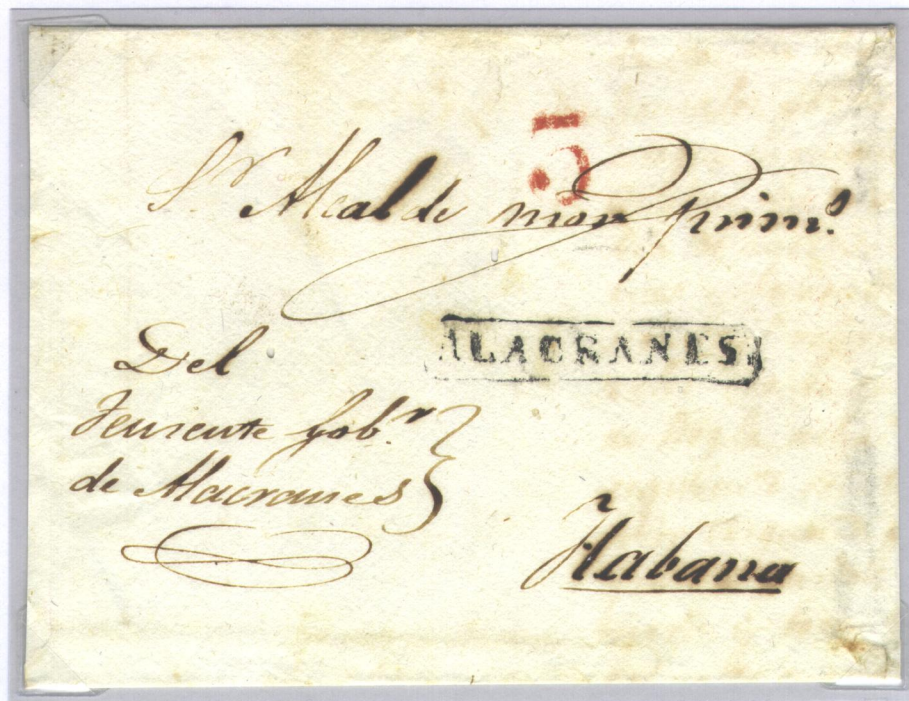 5
Sr. Alcalde mor prim.o
ALACRANES
Del
Teniente Gobr.
de Alacranes
Habana